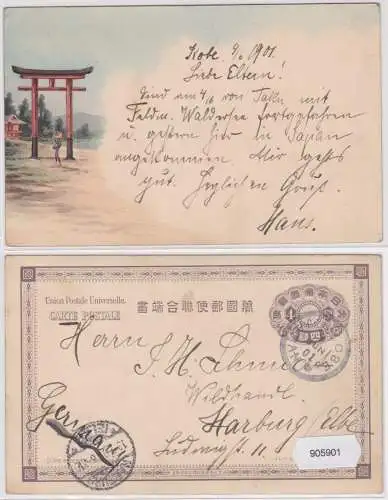 Kobe 9/6 1901.
Liebe Eltern!
Sind am 4/6 von Taku mit
Feldm. Waldersee fortgefahren
u. gestern hier in Japan
angekommen. Mir gehts
gut. Herzlichen Gruß
Hans.
Union Postale Universelle.
CARTE POSTALE
書端合聯便郵國萬
Herrn
J. H.
Wildhandl.
Harburg/Elbe
Ludwigstr. 11
Germany
905901